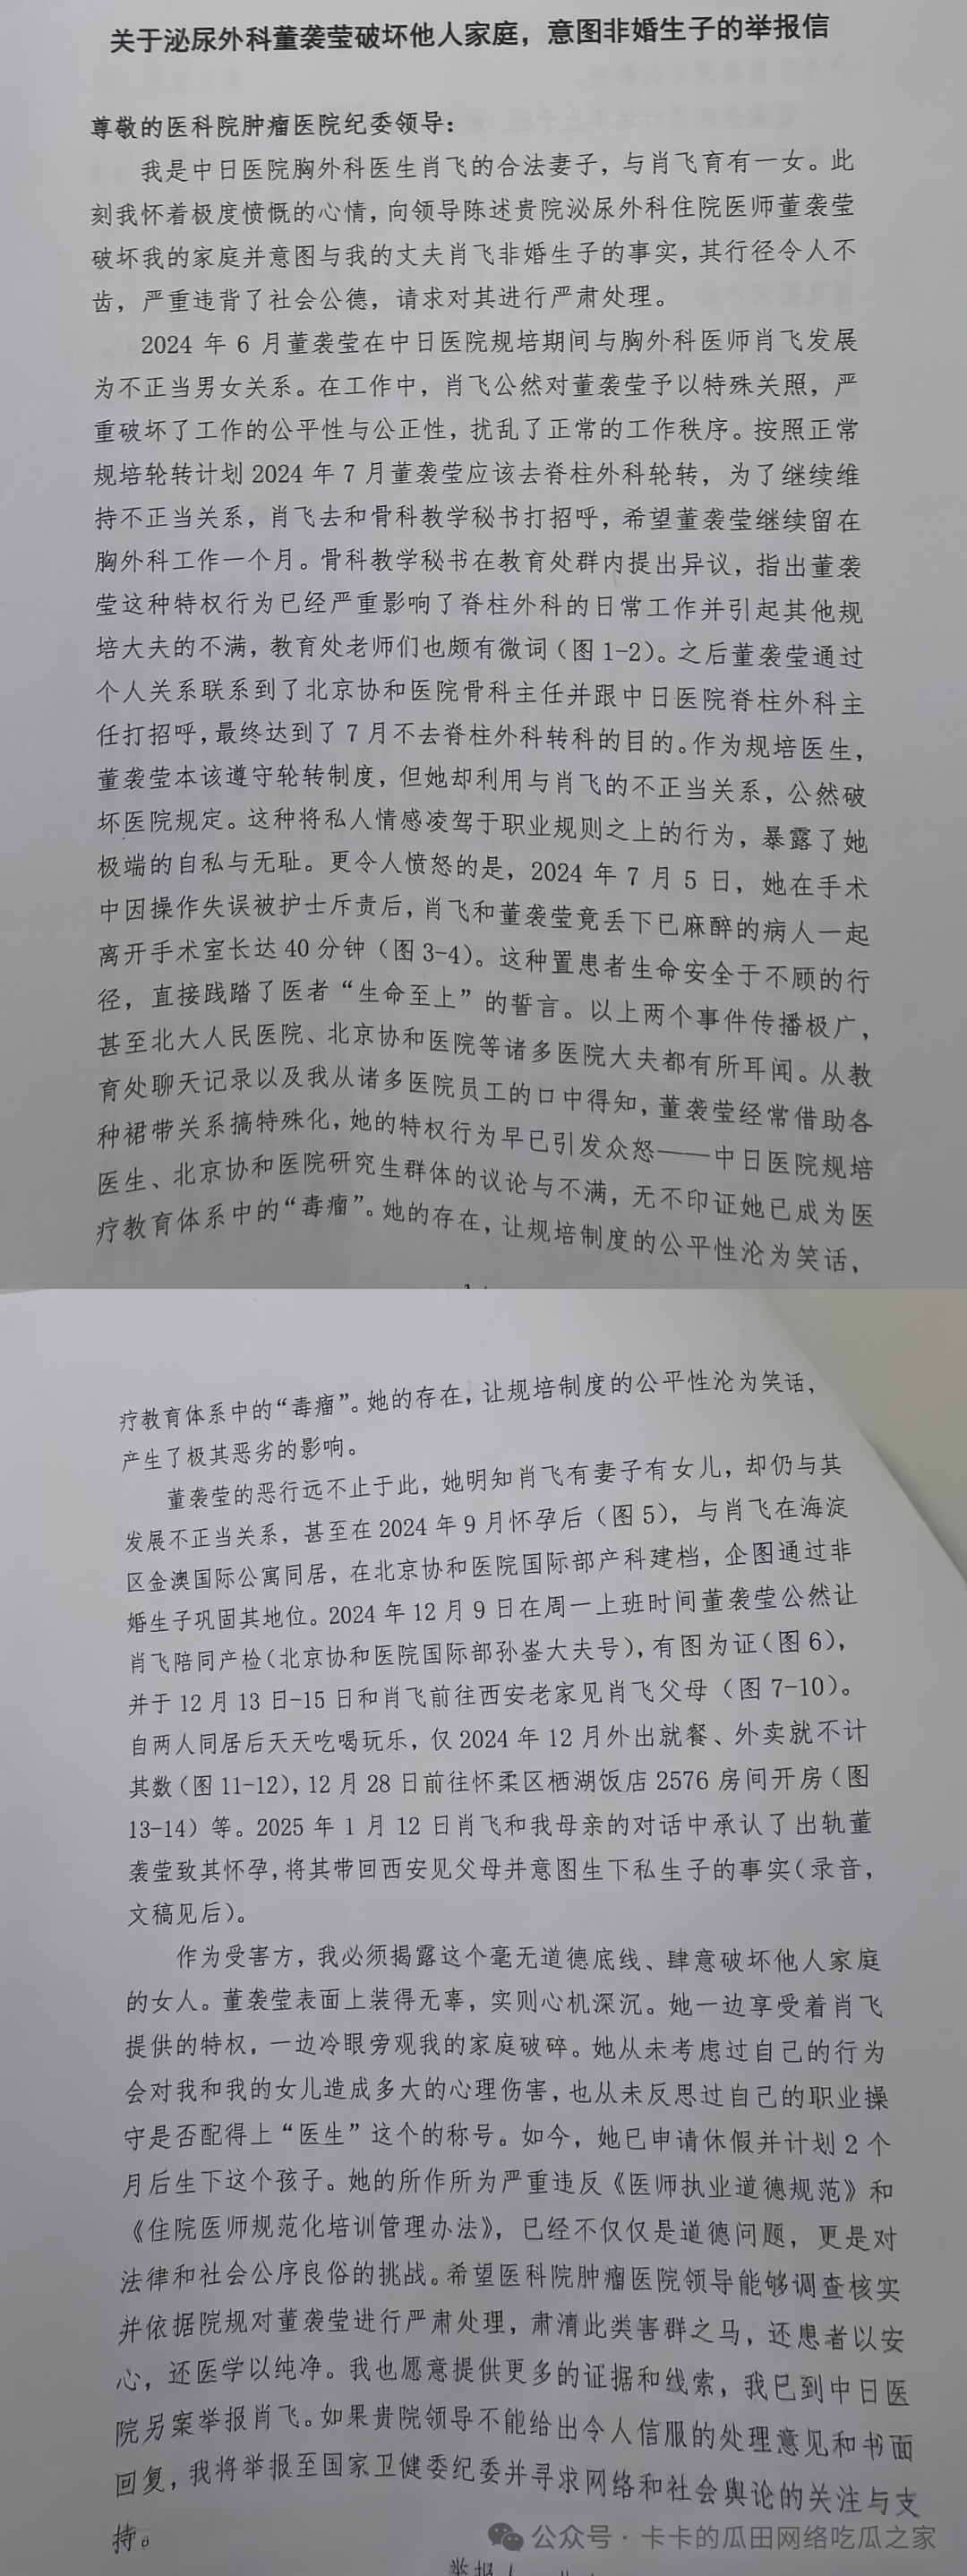 关于泌尿外科董袭莹破坏他人家庭，意图非婚生子的举报信
尊敬的医科院肿瘤医院纪委领导：
我是中日医院胸外科医生肖飞的合法妻子，与肖飞育有一女。此
刻我怀着极度愤慨的心情，向领导陈述贵院泌尿外科住院医师董袭莹
破坏我的家庭并意图与我的丈夫肖飞非婚生子的事实，其行径令人不
齿，严重违背了社会公德，请求对其进行严肃处理。
2024 年 6 月董袭莹在中日医院规培期间与胸外科医师肖飞发展
为不正当男女关系。在工作中，肖飞公然对董袭莹予以特殊关照，严
重破坏了工作的公平性与公正性，扰乱了正常的工作秩序。按照正常
规培轮转计划 2024 年 7 月董袭莹应该去脊柱外科轮转，为了继续维
持不正当关系，肖飞去和骨科教学秘书打招呼，希望董袭莹继续留在
胸外科工作一个月。骨科教学秘书在教育处群内提出异议，指出董袭
莹这种特权行为已经严重影响了脊柱外科的日常工作并引起其他规
培大夫的不满，教育处老师们也颇有微词（图 1-2）。之后董袭莹通过
个人关系联系到了北京协和医院骨科主任并跟中日医院脊柱外科主
任打招呼，最终达到了 7 月不去脊柱外科转科的目的。作为规培医生，
董袭莹本该遵守轮转制度，但她却利用与肖飞的不正当关系，公然破
坏医院规定。这种将私人情感凌驾于职业规则之上的行为，暴露了她
极端的自私与无耻。更令人愤怒的是，2024 年 7 月 5 日，她在手术
中因操作失误被护士斥责后，肖飞和董袭莹竟丢下已麻醉的病人一起
离开手术室长达 40 分钟（图 3-4）。这种置患者生命安全于不顾的行
径，直接践踏了医者“生命至上”的誓言。以上两个事件传播极广，
甚至北大人民医院、北京协和医院等诸多医院大夫都有所耳闻。从教
育处聊天记录以及我从诸多医院员工的口中得知，董袭莹经常借助各
种裙带关系搞特殊化，她的特权行为早已引发众怒——中日医院规培
医生、北京协和医院研究生群体的议论与不满，无不印证她已成为医
疗教育体系中的“毒瘤”。她的存在，让规培制度的公平性沦为笑话，
疗教育体系中的“毒瘤”。她的存在，让规培制度的公平性沦为笑话，
产生了极其恶劣的影响。
董袭莹的恶行远不止于此，她明知肖飞有妻子有女儿，却仍与其
发展不正当关系，甚至在 2024 年 9 月怀孕后（图 5），与肖飞在海淀
区金澳国际公寓同居，在北京协和医院国际部产科建档，企图通过非
婚生子巩固其地位。2024 年 12 月 9 日在周一上班时间董袭莹公然让
肖飞陪同产检（北京协和医院国际部孙崟大夫号），有图为证（图 6），
并于 12 月 13 日-15 日和肖飞前往西安老家见肖飞父母（图 7-10）。
自两人同居后天天吃喝玩乐，仅 2024 年 12 月外出就餐、外卖就不计
其数（图 11-12），12 月 28 日前往怀柔区栖湖饭店 2576 房间开房（图
13-14）等。2025 年 1 月 12 日肖飞和我母亲的对话中承认了出轨董
袭莹致其怀孕，将其带回西安见父母并意图生下私生子的事实（录音，
文稿见后）。
作为受害方，我必须揭露这个毫无道德底线、肆意破坏他人家庭
的女人。董袭莹表面上装得无辜，实则心机深沉。她一边享受着肖飞
提供的特权，一边冷眼旁观我的家庭破碎。她从未考虑过自己的行为
会对我和我的女儿造成多大的心理伤害，也从未反思过自己的职业操
守是否配得上“医生”这个的称号。如今，她已申请休假并计划 2 个
月后生下这个孩子。她的所作所为严重违反《医师执业道德规范》和
《住院医师规范化培训管理办法》，已经不仅仅是道德问题，更是对
法律和社会公序良俗的挑战。希望医科院肿瘤医院领导能够调查核实
并依据院规对董袭莹进行严肃处理，肃清此类害群之马，还患者以安
心，还医学以纯净。我也愿意提供更多的证据和线索，我已到中日医
院另案举报肖飞。如果贵院领导不能给出令人信服的处理意见和书面
回复，我将举报至国家卫健委纪委并寻求网络和社会舆论的关注与支
持。
公众号 · 卡卡的瓜田网络吃瓜之家